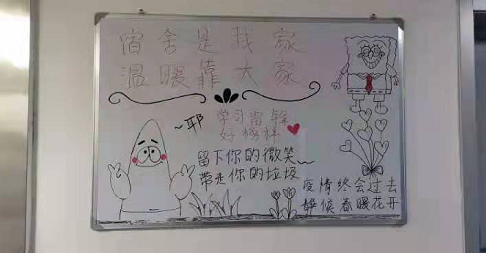 宿舍是我家
温暖靠大家
~耶
学习雷锋
好榜样
留下你的微笑
带走你的垃圾
疫情终会过去
静候春暖花开